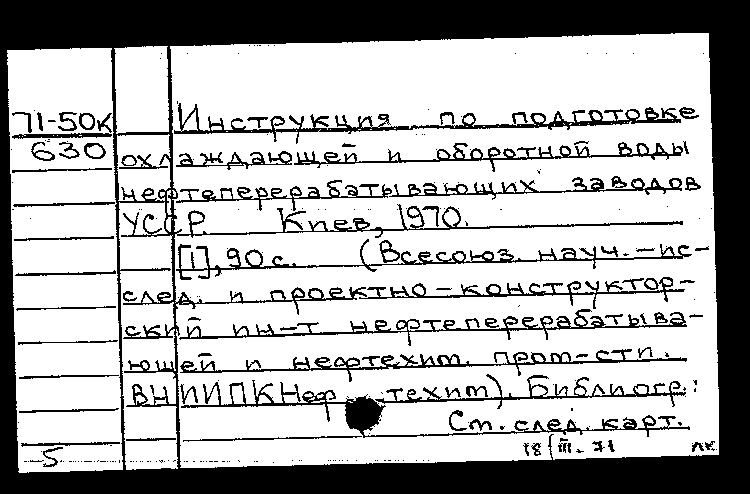 71-50к Инструкция по подготовке
630 охлаждающей и оборотной воды
нефтеперерабатывающих заводов
УССР. Киев, 1970.
[1], 90 с. (Всесоюз. науч.-ис-
след. и проектно-конструктор-
ский ин-т нефтеперерабатыва-
ющей и нефтехим. пром-сти.
ВНИИПКНефтехим). Библиогр.:
См. след. карт.
5 18/III.71 лк